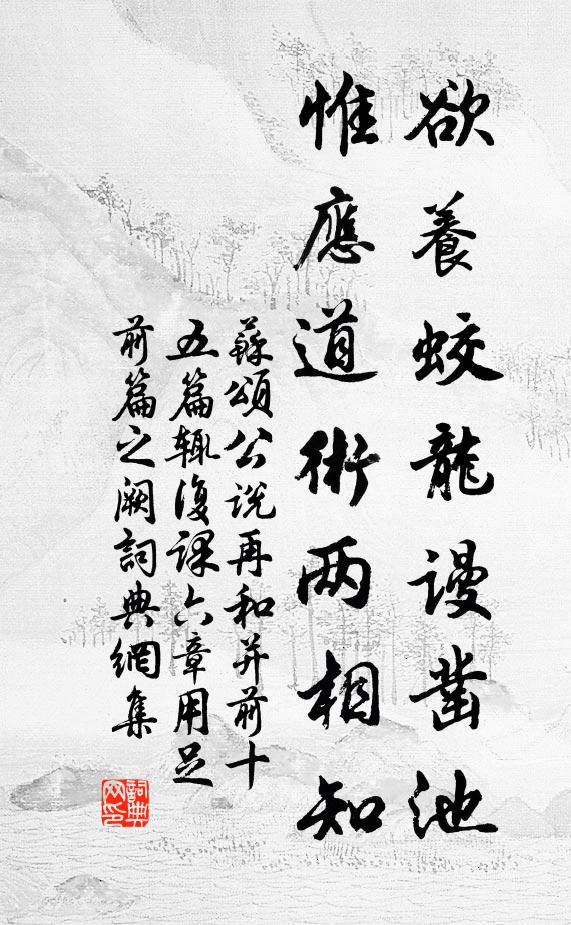 欲養蛟龍謾鑿池
惟應道術两相知
蘇頌公說再和并前十
五篇輙復課六章用足
前篇之阙詞典網集
詞典网印